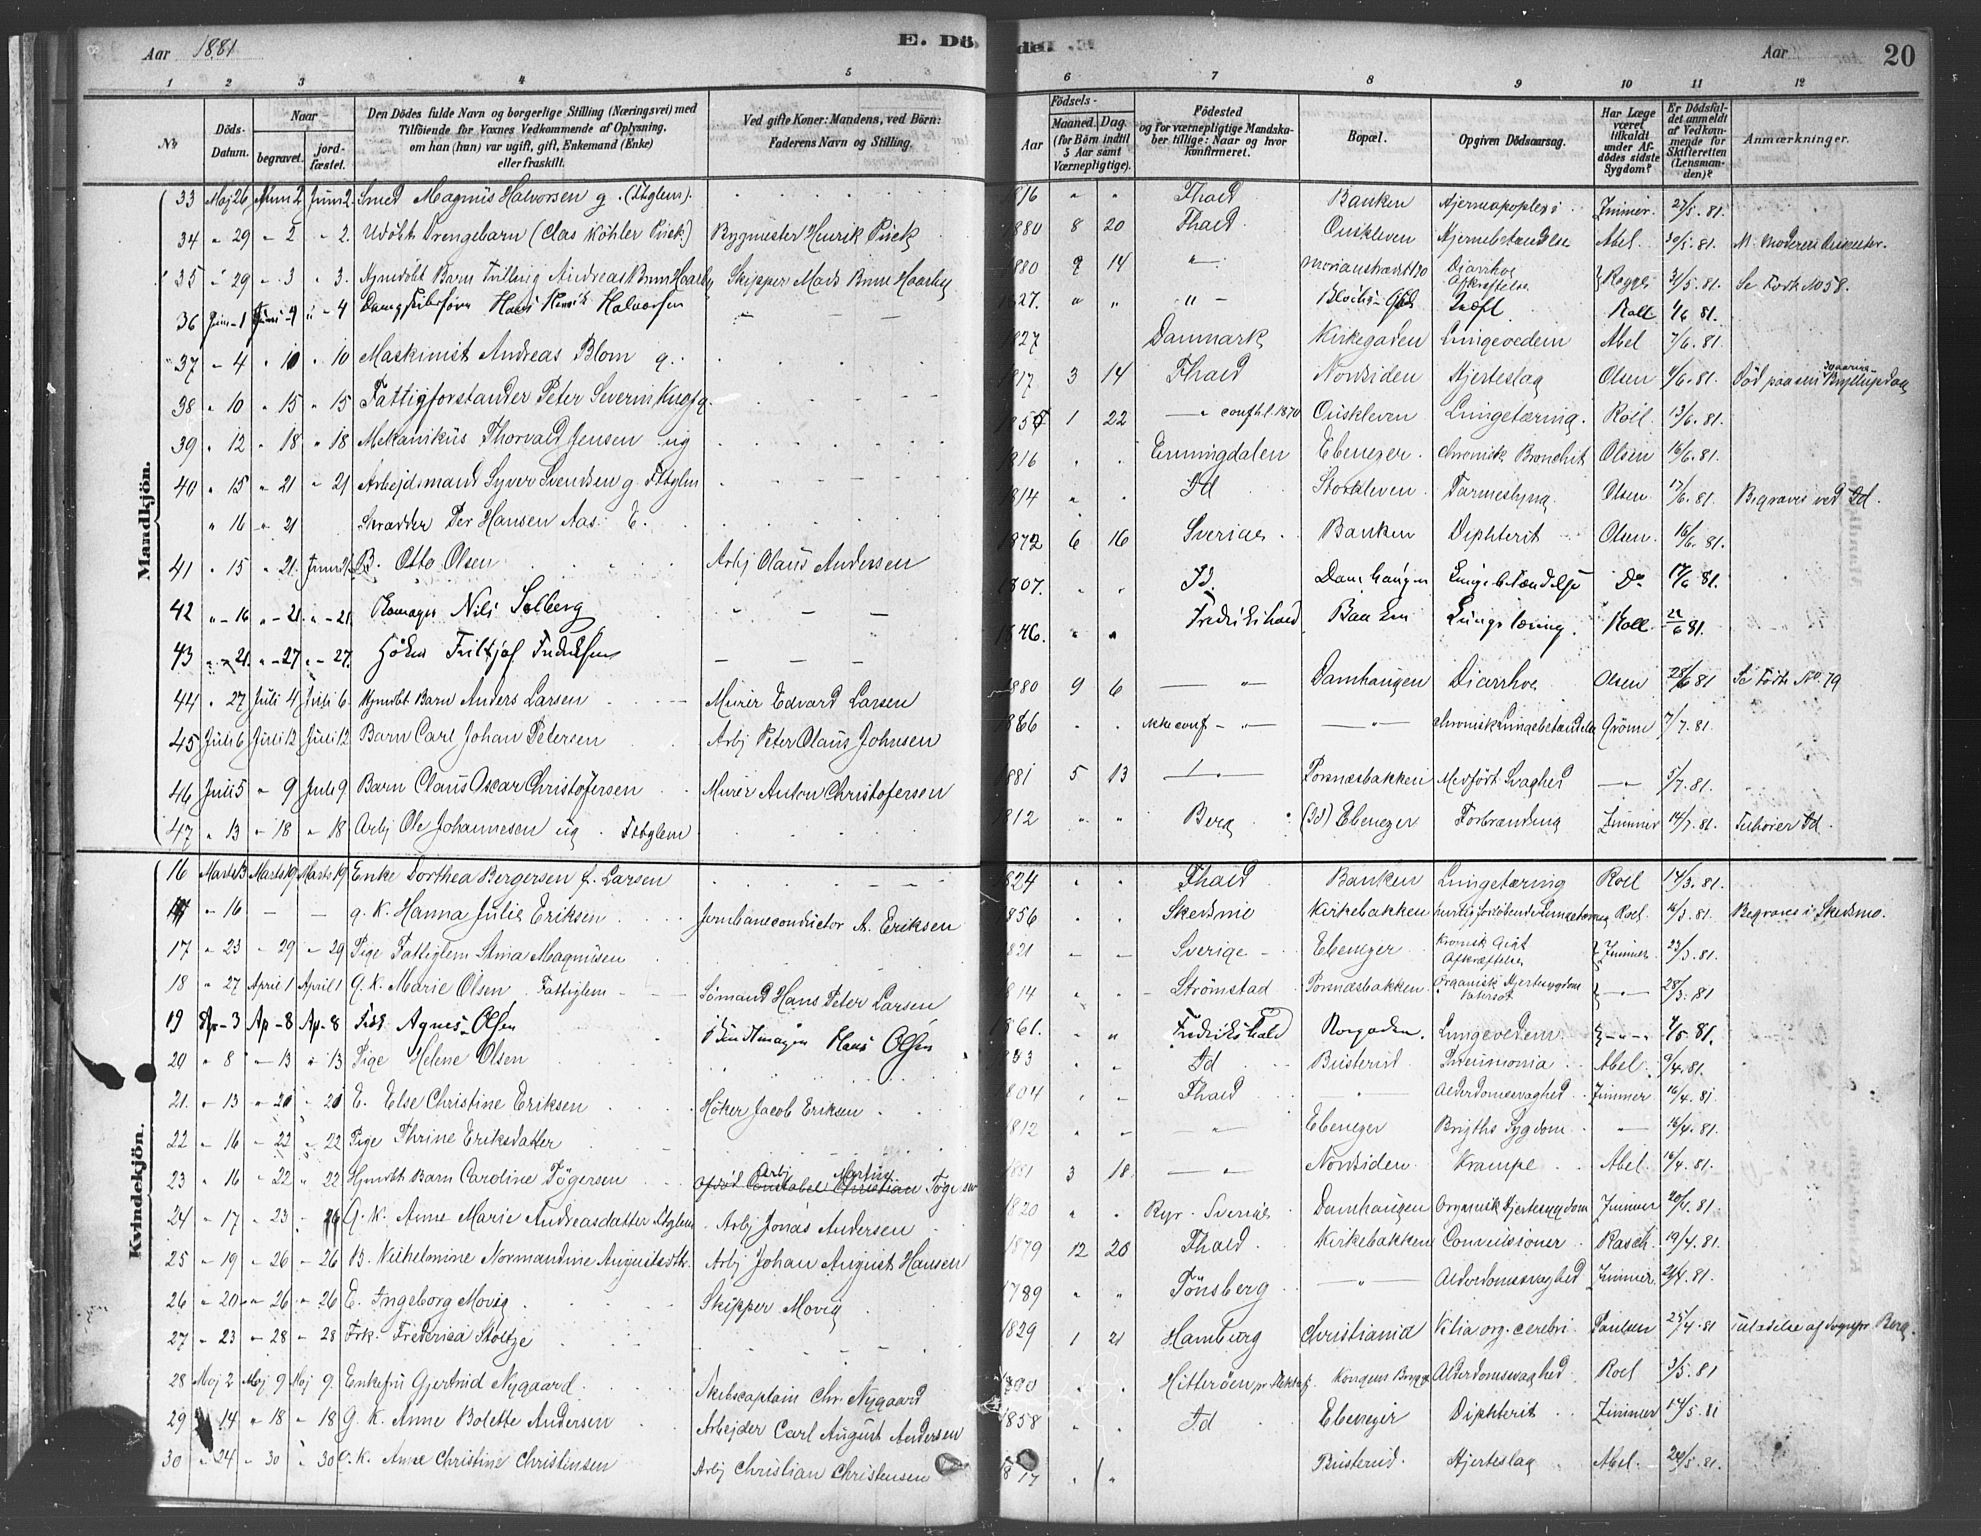 Aar 1881
E. Dö
de.
Aar
20
1 2 3 4 5 6 7 8 9 10 11 12
No
Döds-Datum.
Naar
begravet.
jordfæstet.
Den Dödes fulde Navn og borgerlige Stilling (Næringsvei) med Tilföiende for Voxnes Vedkommende af Oplysning, om han (hun) var ugift, gift, Enkemand (Enke) eller fraskilt.
Ved gifte Koner: Mandens, ved Börn: Faderens Navn og Stilling.
Födsels-
Aar
Maaned. Dag.
(for Börn indtil 5 Aar samt Værnepligtige).
Födested og for værnepligtige Mandskaber tillige: Naar og hvor konfirmeret.
Bopæl.
Opgiven Dödsaarsag.
Har Læge været tilkaldt under Afdödes sidste Sygdom?
Er Dödsfaldet anmeldt af Vedkommende for Skifteretten (Lensmanden)?
Anmærkninger.
Mandkjön.
33 Maj 26 Juni 2 Juni 2 Smed Magnus Halvorsen g. (Ftbglem). 1816 " " Fhald Banken Hjerneapoplexi Zimmer 27/5 81.
34 " 29 " 2 " 2. Udöbt Drengebarn (Clas Köhler Pück) Bygmester Henrik Pück 1880 8 20 Fhald Ouskleven Hjernebetændelse Abel 30/5 81.
35 " 29 " 3 " 3. Hjemdöbt Barn Tvilling Andreas Bruun Haarby Skipper Mads Bruun Haarby 1880 9 14 " Diarrhoe Afkræftelse 31/5 81. Se Födte No 58.
36 Juni 1 Juni 4 " 4 Hans Henrik Halvorsen 1827. " " " Roll 1/6 81.
37 " 4 " 10 " 10 Maskinist Andreas Blom g. 1827 Danmark Kirkegaden Lungeoedem Abel 7/6 81.
38 " 10 " 15 " 15 Fattigforstander Peter Severin 1817 3 14 Fhald Nordsiden Hjerteslag Olsen 81. Död paa sin Bryllupsdag
39 " 12 " 18 " 18 Mekanikus Thorvald Jensen ug 1 22 conf. 1870 Ouskleven Lungetæring. Roll 13/6 81.
40 " 15 " 21 " 21 Arbejdsmand Syver Svendsen g Ftbglem 1816 Enningdalen Ebenezer chronisk Bronchit Olsen 16/6 81.
" 16 " 21 Skrædder Per Hansen Aas. E. 1814 Id Storkleven Tarmeslyng Olsen 17/6 81. Begraves ved Id.
41 " 15 " 21. Juni 21 B. Otto Olsen Arbj Olaus Andersen 1872 6 16 Sverige Banken Diphterit Olsen 16/6 81.
42 " 16 " 21. " 21. Nils Solberg 1807. Id. Damhaugen Lungebetændelse Do 17/6 81.
43 " 21. " 27 " 27. Höker Fritjof Fredriksen 1846. Fredrikshald Banken Lungetæring. Roll 22/6 81.
44 " 27 Juli 4 Juli 6 Hjemdöbt Barn Anders Larsen Murer Edvard Larsen 1880 9 6 " Damhaugen Diarrhoe Olsen 28/6 81 Se Födte No 79
45 Juli 6 Juli 12 Juli 12 Barn Carl Johan Petersen Arbj Peter Olaus Johnsen 1866 ikke conf " " chronisk Lungebetændelse Gröme 7/7 81.
46 Juli 5 " 9 Juli 9 Barn Claus Oscar Christofersen Murer Anton Christofersen 1881 5 13 " Porsnæsbakken Medfödt Svaghed " 5/7 81.
47 " 13 " 18 " 18 Arbj Ole Johannesen ug Ftbglem 1812 " " Berg (Id) Ebenezer Forbrænding Zimmer 14/7 81. Tilhörer Id.
Kvindekjön.
16 Marts 13 Marts 19 Marts 19 Enke Dorthea Bergersen f. Larsen 1824 Fhald Banken Lungetæring Roll 14/3 81.
" 16 — — g. K. Hanna Julie Eriksen Jernbaneconductor A. Eriksen 1856 Skedsmo Kirkebakken hurtig forlöbende Lungetæring Roll 16/3 81. Begraves i Skedsmo.
17 " 23 " 29 " 29 Pige Fattiglem Stina Magnusen 1821 Sverige Ebenezer Kronisk Gigt Afkræftelse Zimmer 23/3 81.
18 " 27 April 1 April 1 G. K. Marie Olsen Fattiglem Sömand Hans Peter Larsen 1814 Strömstad Porsnæsbakken Organisk Hjertesygdom Vatersot " 28/3 81
19 Ap 3 Ap 8 Ap 8 Agnes Olsen Hans Olsen 1861. Fredrikshald Lungeoedem 81.
20 " 8 " 13 " 13 Pige Helene Olsen Id Busterud Pneumonia Abel 9/4 81.
21. " 13 " 20 " 20 E. Else Christine Eriksen Höker Jacob Eriksen 1804 Fhald " Alderdomssvaghed Zimmer 16/4 81
22 " 16 " 22 " 22 Pige Thrine Eriksdatter 1812 " Ebenezer Brigths Sygdom " 16/4 81.
23 " 16 " 22 " 22 Hjemdöbt Barn Caroline Tögersen Arbj Martin Tögersen 1881 3 18 " Nordsiden Krampe Abel 16/4 81.
24 " 17 " 23 " 26 G. K. Anne Marie Andreasdatter Ftbglem Arbj Jonas Andersen 1820 Sverige Damhaugen Organisk Hjertesygdom Zimmer 20/4 81.
25 " 19 " 26 " 26 B. Vilhelmine Normandine Augustsdtr. Arbj Johan August Hansen 1879 12 20 Fhald. Kirkebakken Convulsioner Rasch 19/4 81.
26 " 20 " 26 " 26 E. Ingeborg Movig Skipper Movig 1789 Tönsberg " Alderdomssvaghed Zimmer 21/4 81.
27 " 23 " 28 " 28 Frk. Frederica Stoltze 1829 1 21 Hamburg Christianid Vitia org. cerebri Paulsen 25/4 81
28 Maj 2 Maj 9 Maj 9. Enkefru Gjertrud Nygaard Skibscaptain Chr. Nygaard 1800 Hitteröen Kongens Brygge Alderdomssvaghed Roll 3/5 81
29 " 14 " 18 " 18 G. K. Anne Bolette Andersen Arbejder Carl August Andersen 1858 Id Ebenezer Diphterit Zimmer 14/5 81
30 " 24 " 30 " 30 g. K. Anne Christine Christensen Arbj Christian Christensen 1817 Busterud. Hjerteslag Abel 24/5 81.